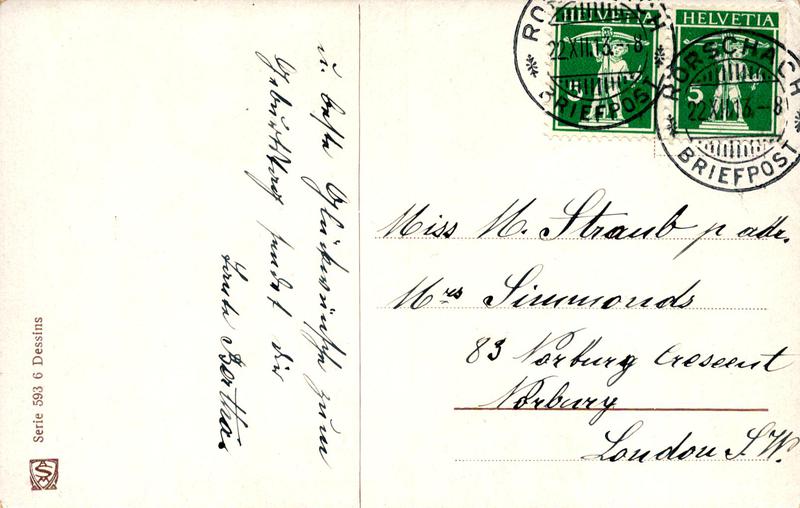 u. beste Glückwünsche zum
Geburtstag sendet dir
Tante Bertha.
Serie 593 6 Dessins
HELVETIA
5
HELVETIA
5
RORSCHACH
22.XII.13.-8
BRIEFPOST
RORSCHACH
22.XII.13.-8
BRIEFPOST
Miss M. Straub p adr.
Mrs Simmonds
83 Norbury Crescent
Norbury
London S.W.